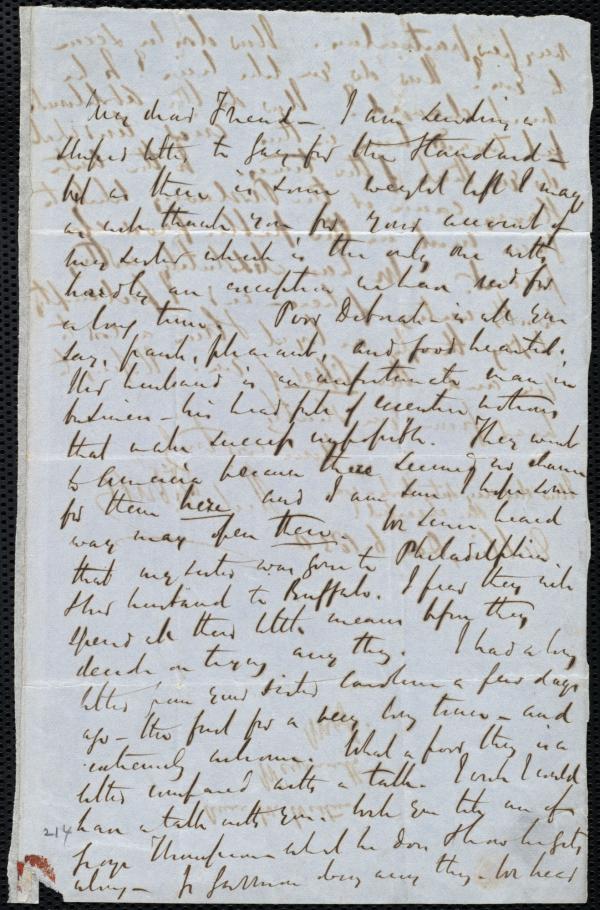 My dear Friend – I am sending a
stupid letter to Gay for the Standard –
but as there is some weight left I may
as well thank you for your account of
my sister which is the only one with
hardly an exception we have recd for
a long time. Poor Deborah is all you
say, frank, pleasant, and good hearted.
Her husband is an unfortunate man in
business – his head full of eccentric notions
that make success impossible. They went
to America because there seemed no chance
for them here and I am sure I hope some
way may open there. We soon heard
that my sister was gone to Philadelphia
her husband to Buffalo. I fear they will
spend all their little means before they
decide on trying any thing. I had a long
letter from your sister Caroline a few days
ago – the first for a very long time – and
extremely welcome. What a poor thing is a
letter compared with a talk. I wish I could
have a talk with you. Wish you tell me of
George Thompson what he does & how he gets
along – Is Garrison doing any thing. We hear
214